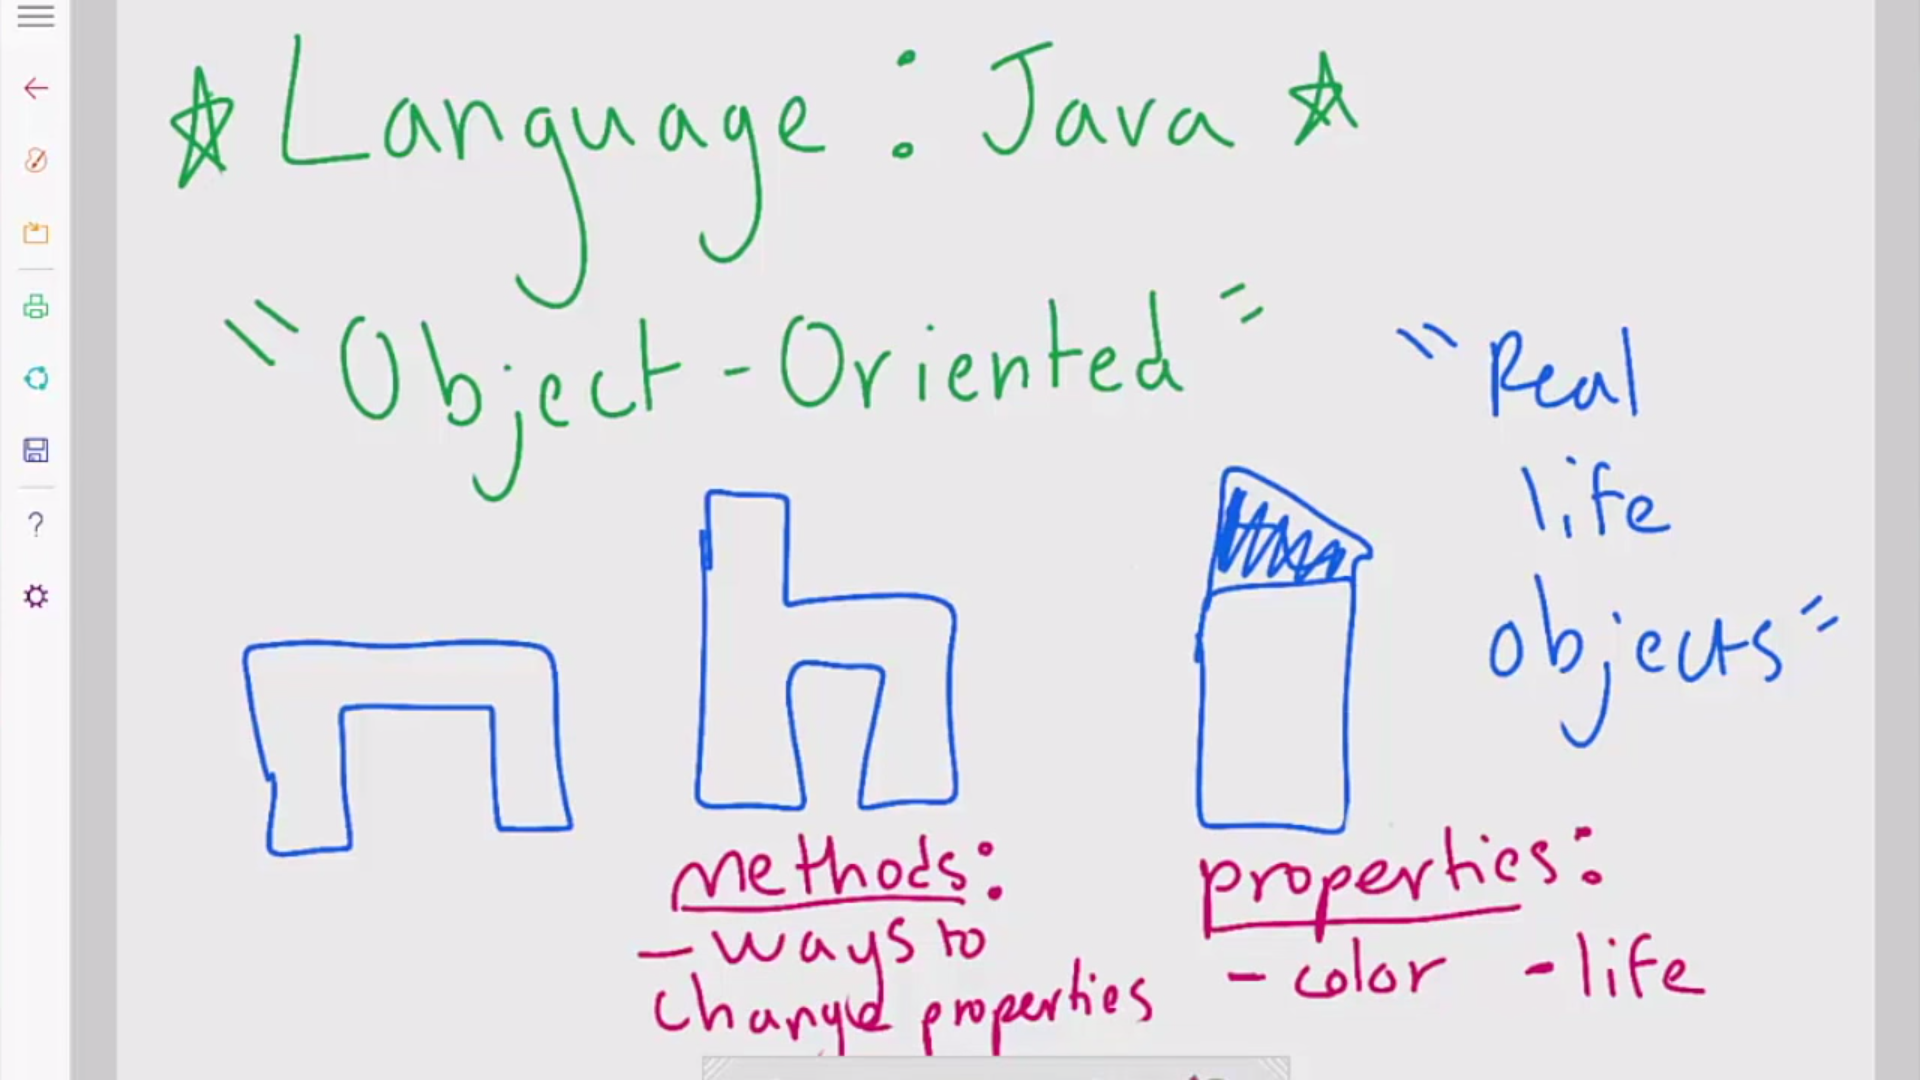 Language: Java
"Object-Oriented"
"Real
life
objects"
methods:
- ways to
change properties
properties:
- color - life
?